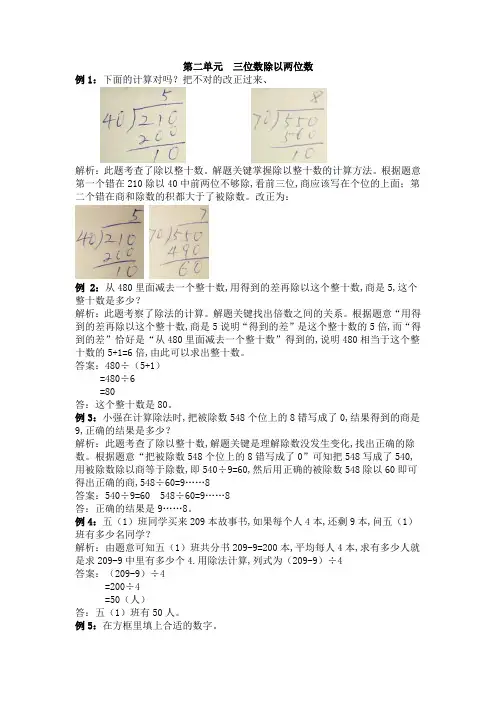 第二单元 三位数除以两位数
例1：下面的计算对吗？把不对的改正过来、
5
40)210
200
10
8
70)550
560
10
解析：此题考查了除以整十数。解题关键掌握除以整十数的计算方法。根据题意
第一个错在210除以40中前两位不够除,看前三位,商应该写在个位的上面；第
二个错在商和除数的积都大于了被除数。改正为：
5
40)210
200
10
7
70)550
490
60
例 2：从480里面减去一个整十数,用得到的差再除以这个整十数,商是5,这个
整十数是多少？
解析：此题考察了除法的计算。解题关键找出倍数之间的关系。根据题意“用得
到的差再除以这个整十数,商是5说明“得到的差”是这个整十数的5倍,而“得
到的差”恰好是“从480里面减去一个整十数”得到的,说明480相当于这个整
十数的5+1=6倍,由此可以求出整十数。
答案：480÷（5+1）
=480÷6
=80
答：这个整十数是80。
例3：小强在计算除法时,把被除数548个位上的8错写成了0,结果得到的商是
9,正确的结果是多少？
解析：此题考查了除以整十数,解题关键是理解除数没发生变化,找出正确的除
数。根据题意“把被除数548个位上的8错写成了0”可知把548写成了540,
用被除数除以商等于除数,即540÷9=60,然后用正确的被除数548除以60即可
得出正确的商,548÷60=9……8
答案：540÷9=60 548÷60=9……8
答：正确的结果是9……8。
例4：五（1）班同学买来209本故事书,如果每个人4本,还剩9本,问五（1）
班有多少名同学？
解析：由题意可知五（1）班共分书209-9=200本,平均每人4本,求有多少人就
是求209-9中里有多少个4.用除法计算,列式为（209-9）÷4
答案：（209-9）÷4
=200÷4
=50（人）
答：五（1）班有50人。
例5：在方框里填上合适的数字。